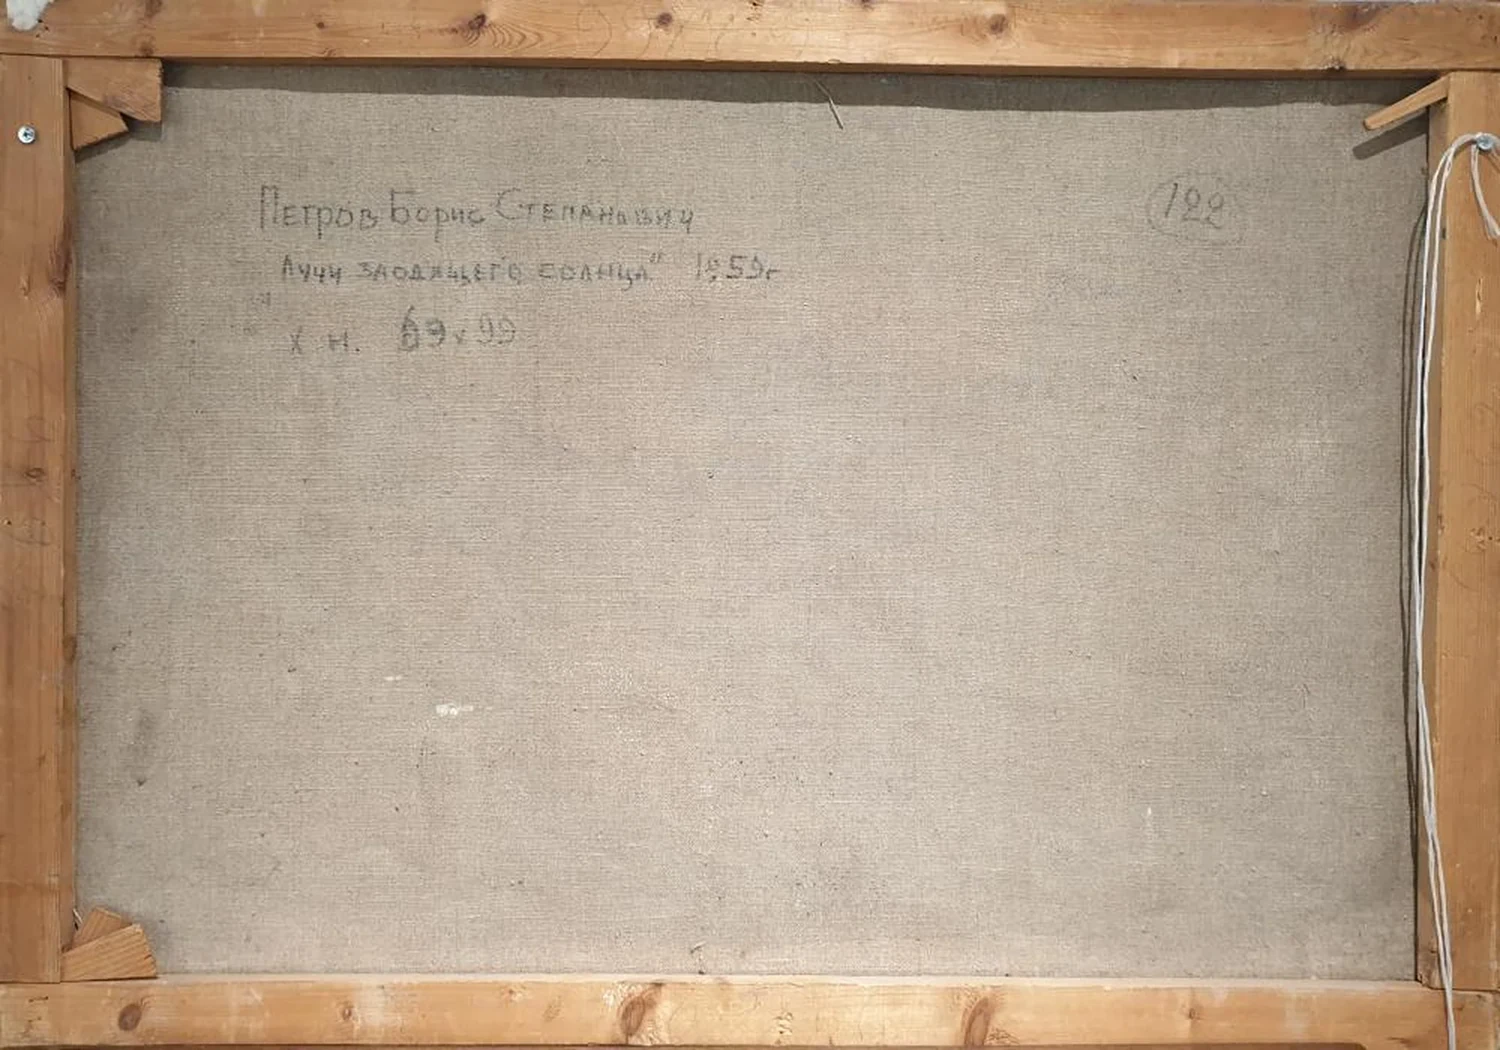 Петров Борис Степанович
122
Лучи заодящего солнца" 1959г
х н. 69х99